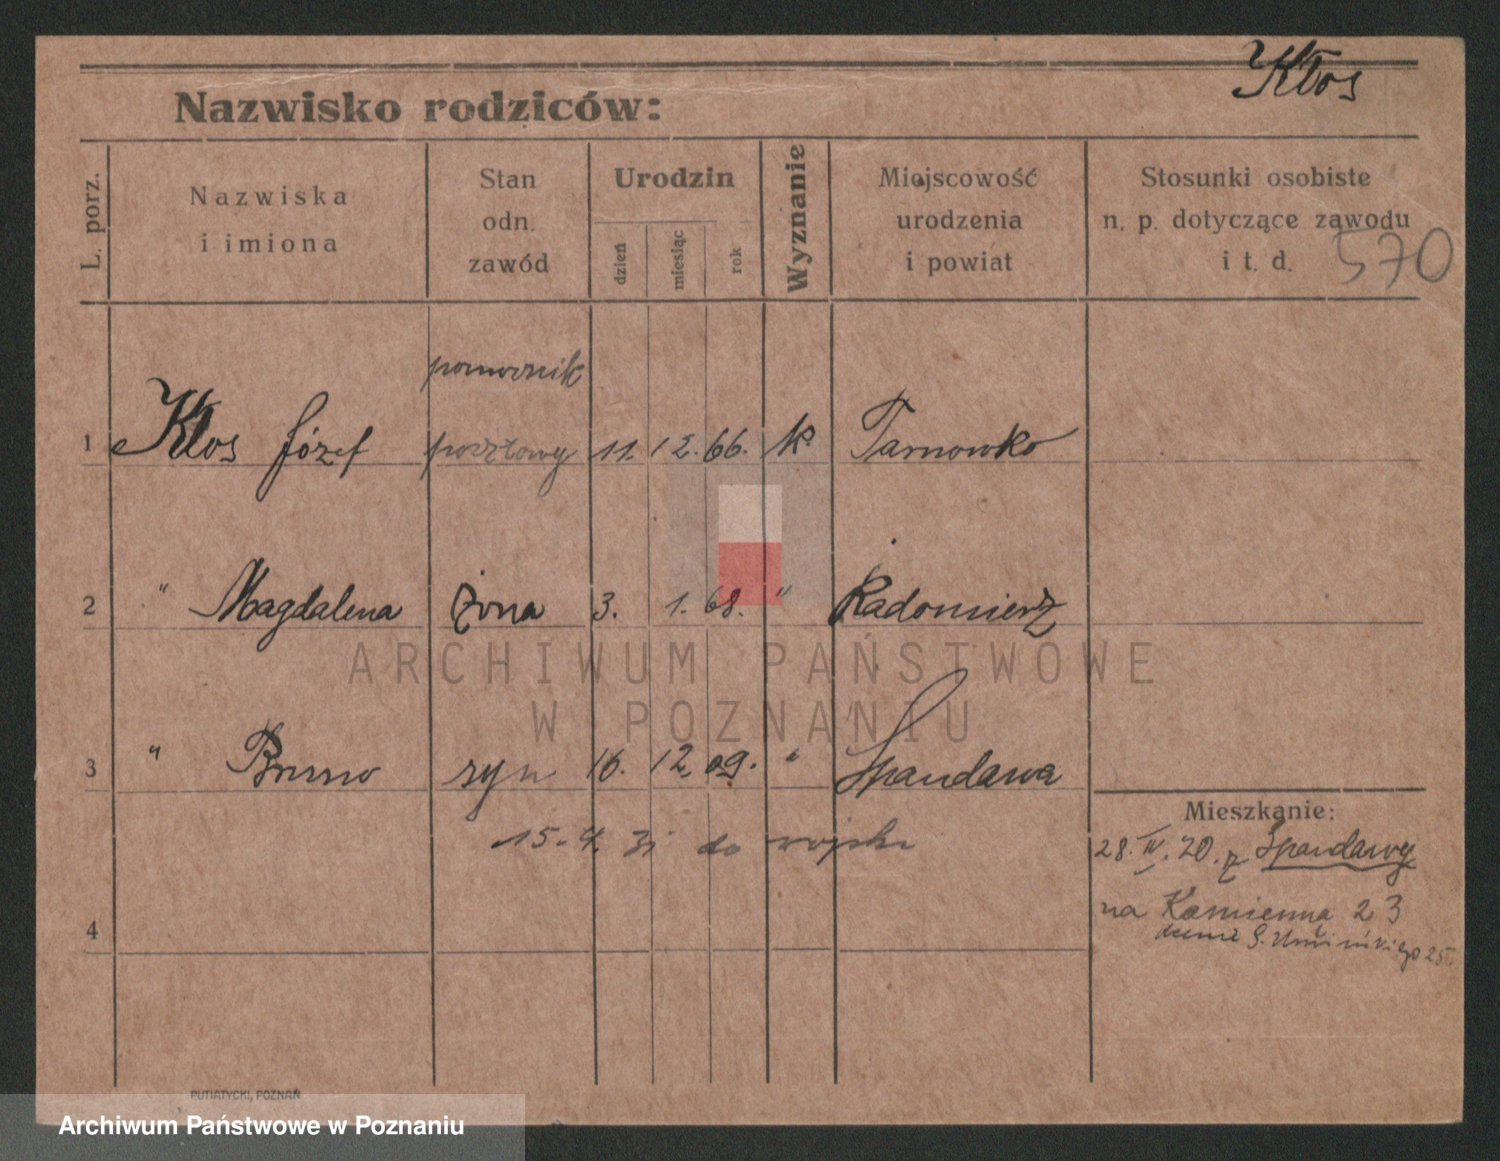 Kłos
Nazwisko rodziców:
L. porz.
Nazwiska
i imiona
Stan
odn.
zawód
Urodzin
dzień
miesiąc
rok
Wyznanie
Miejscowość
urodzenia
i powiat
Stosunki osobiste
n. p. dotyczące zawodu
i t. d.
570
pomocnik
1 Kłos Józef pocztowy 11. 12. 66. k. Tarnowko
2 " Magdalena żona 3. 1. 68. " Radomierz
ARCHIWUM PAŃSTWOWE
W POZNANIU
3 " Bruno syn 16. 12. 09. " Spandawa
15.4. 31 do wojska
Mieszkanie:
28. IV. 20. z Spandawy
na Kamienna 23
4
PUTIATYCKI, POZNAŃ
Archiwum Państwowe w Poznaniu